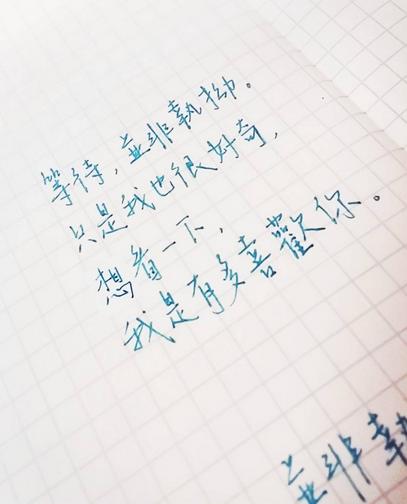 等待，並非執拗。
只是我也很好奇，
想看一下，
我是有多喜歡你。
並非執